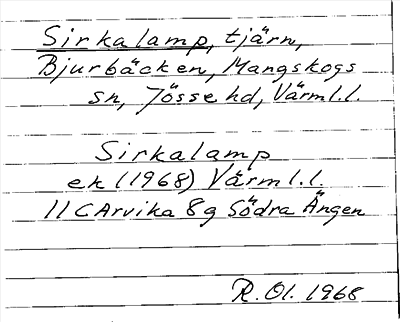 Sirkalamp, tjärn,
Bjurbäcken, Mangskogs
sn, Jösse hd, Värml.l.
Sirkalamp
ek (1968) Värml.l.
11CArvika 8g Södra Ängen
R. Ol. 1968